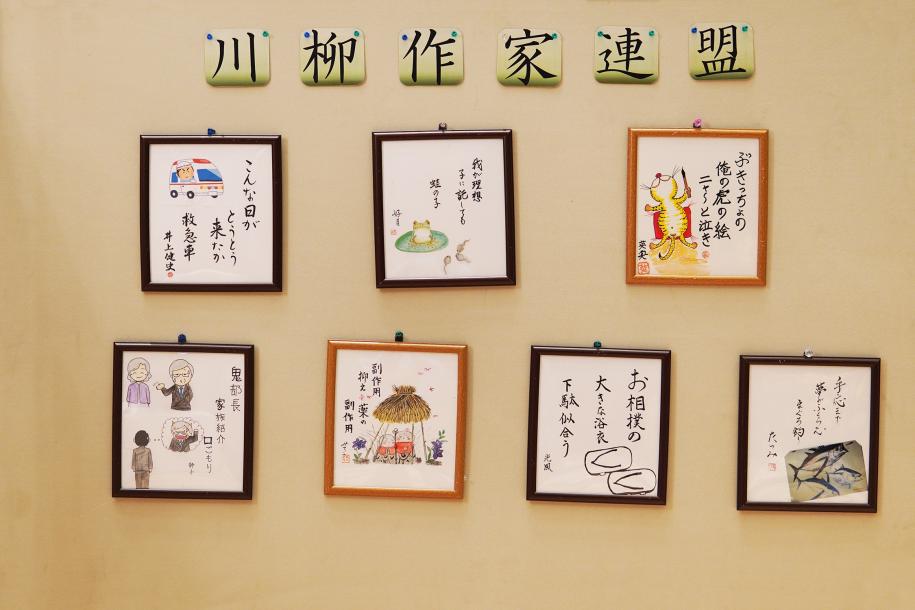 川柳作家連盟
こんな日が
とうとう
来たか
救急車
井上健史
我が理想
子に託しても
蛙の子
好月
ぶきっちょの
俺の虎の絵
ニャ〜と泣き
英典
鬼部長
家族紹介
口ごもり
副作用
抑え薬の
副作用
お相撲の
大きな浴衣
下駄似合う
光風
手応えに
夢がふくらん
まぐろ釣
たつみ